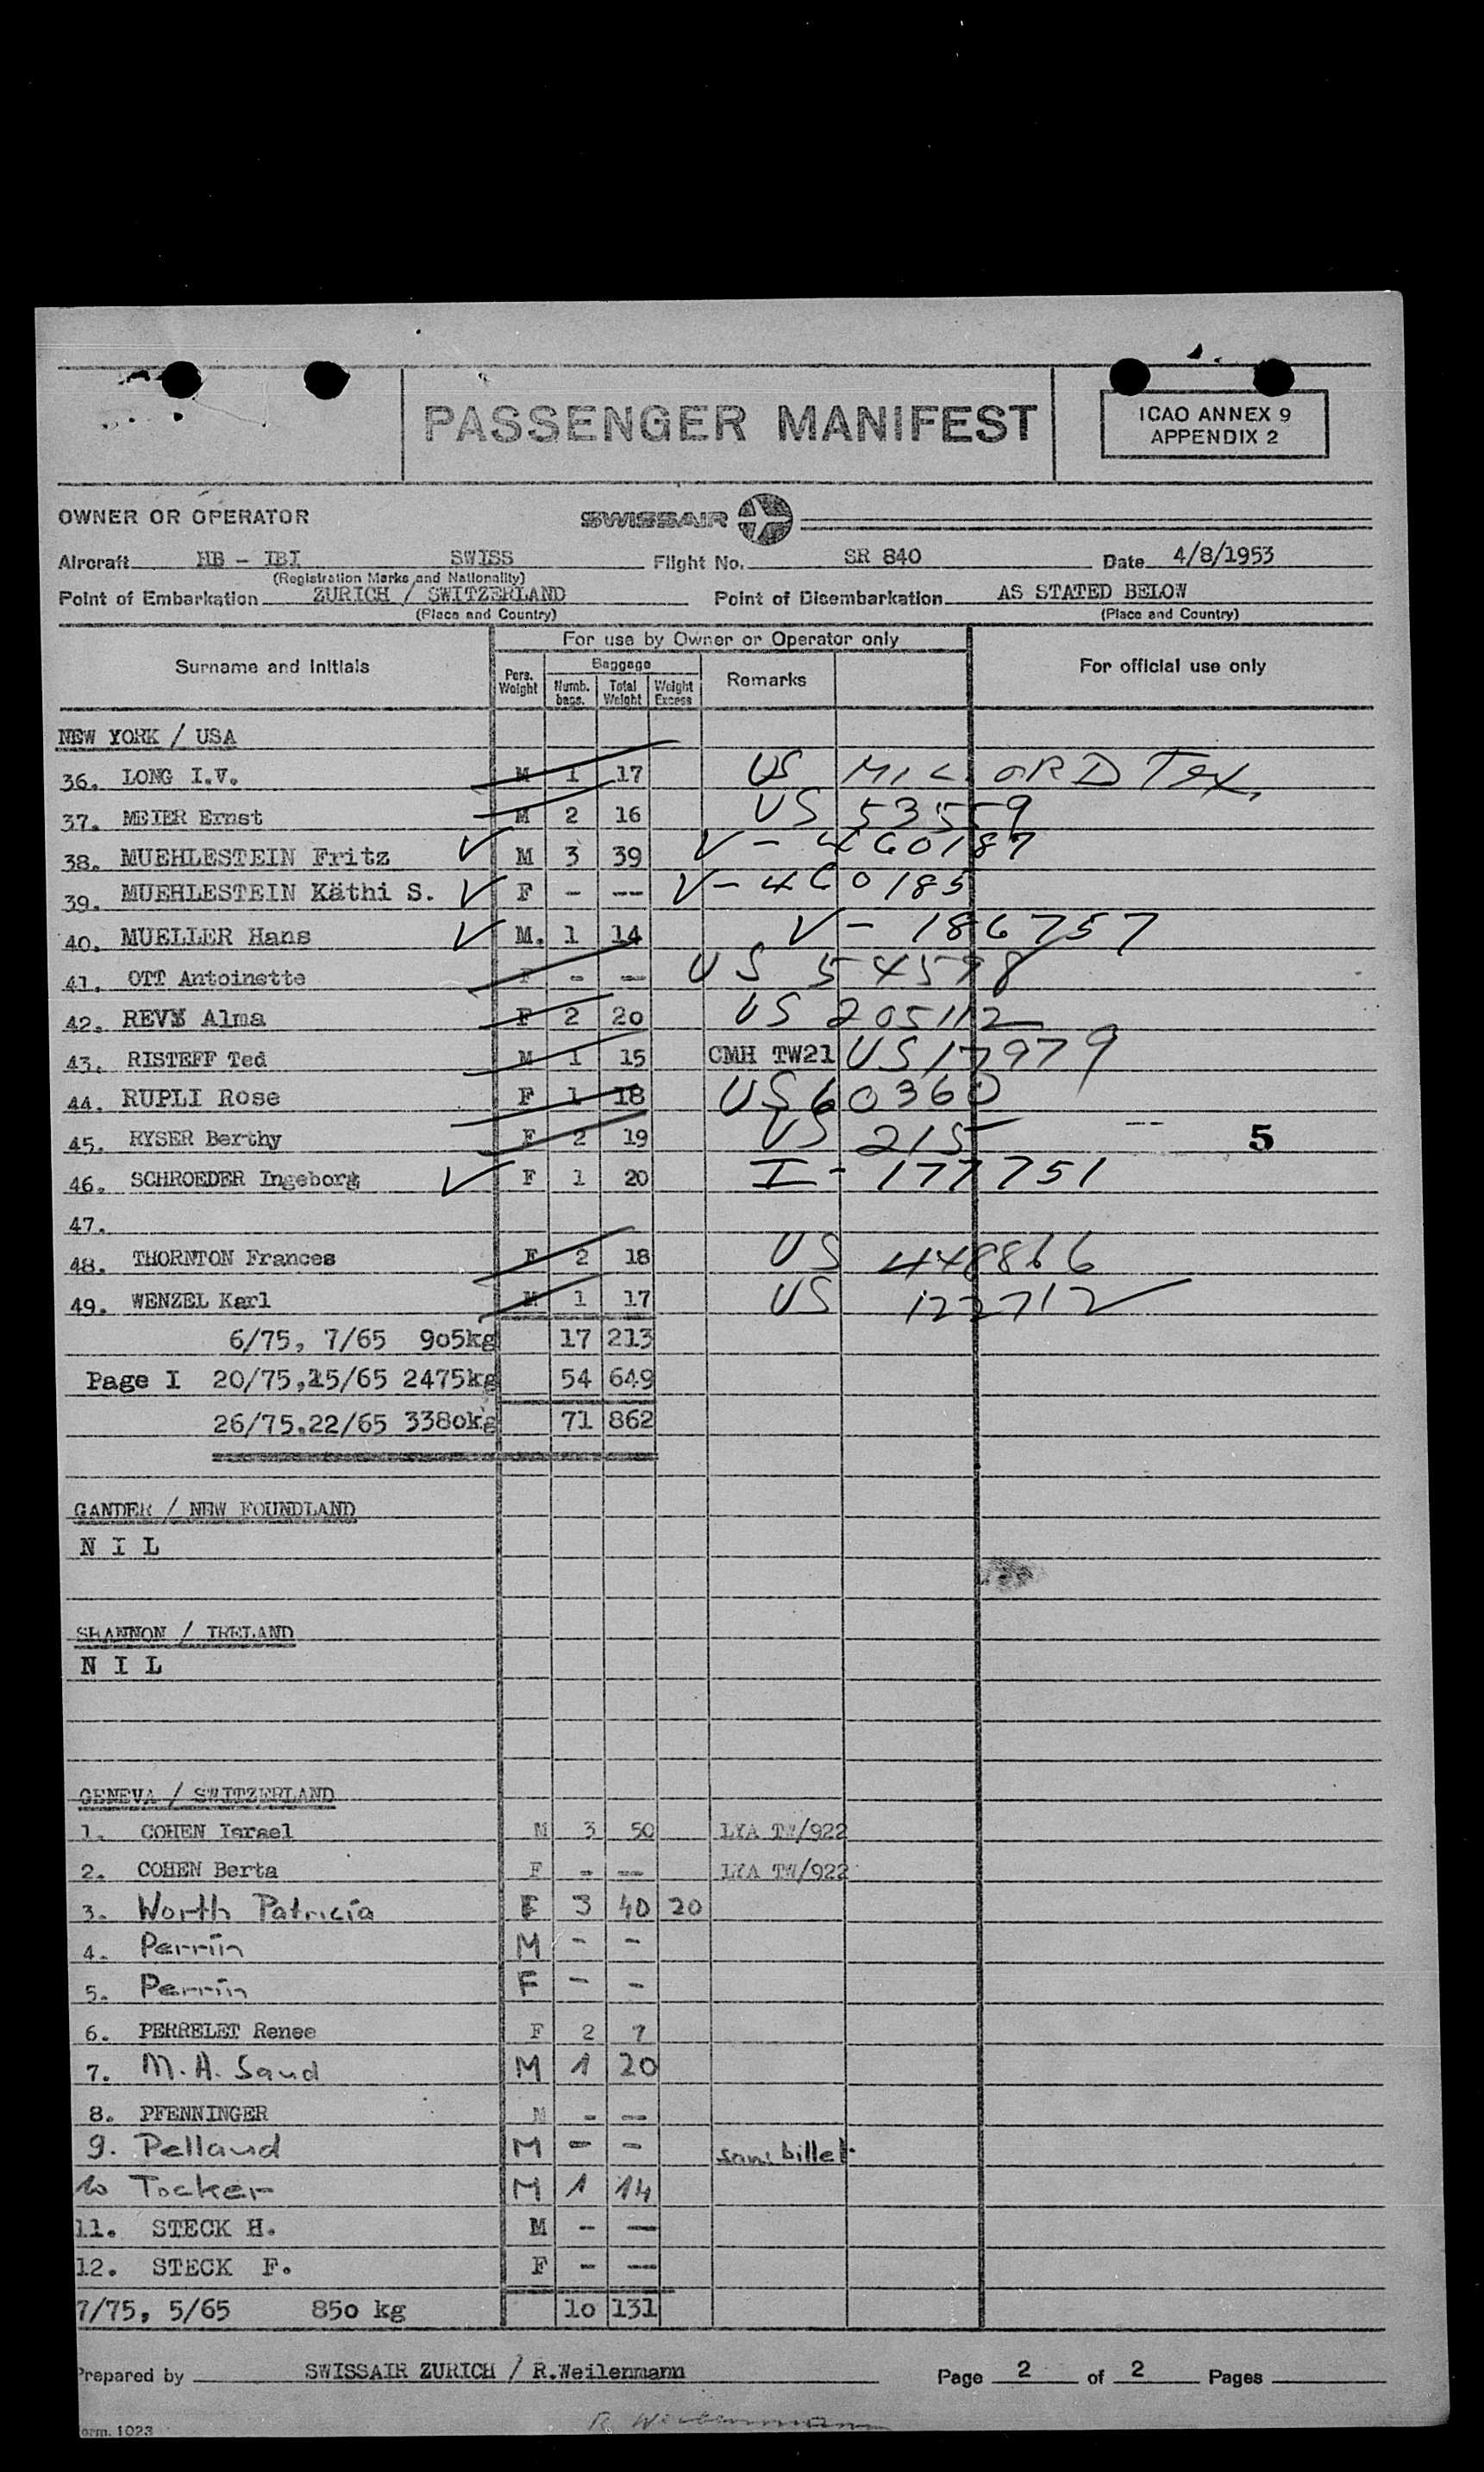 PASSENGER MANIFEST
ICAO ANNEX 9
APPENDIX 2
OWNER OR OPERATOR SWISSAIR
Aircraft HB - IBI SWISS Flight No. SR 840 Date 4/8/1953
(Registration Marks and Nationality)
Point of Embarkation ZURICH / SWITZERLAND Point of Disembarkation AS STATED BELOW
(Place and Country) (Place and Country)
For use by Owner or Operator only
Surname and Initials Pers. Weight Baggage Numb. bags. Total Weight Weight Excess Remarks For official use only
NEW YORK / USA
36. LONG I.V. M 1 17 US MIL ORD Tex.
37. MEIER Ernst M 2 16 US 53559
38. MUEHLESTEIN Fritz ✓ M 3 39 V - 460187
39. MUEHLESTEIN Käthi S. ✓ F - -- V - 460185
40. MUELLER Hans ✓ M. 1 14 V - 186757
41. OTT Antoinette F - -- US 54598
42. Alma F 2 20 US 205112
43. RISTEFF Ted M 1 15 CMH TW21 US 17979
44. RUPLI Rose F 1 18 US 60360
45. RYSER Berthy F 2 19 US 215 -- 5
46. SCHROEDER Ingeborg ✓ F 1 20 I - 177751
47.
48. THORNTON Frances F 2 18 US 448866
49. WENZEL Karl M 1 17 US 122712
6/75, 7/65 905kg 17 213
Page I 20/75,15/65 2475kg 54 649
26/75.22/65 3380kg 71 862
GANDER / NEW FOUNDLAND
N I L
SHANNON / IRELAND
N I L
GENEVA / SWITZERLAND
1. COHEN Israel M 3 50 LYA TW/922
2. COHEN Berta F - -- LYA TW/922
3. Worth Patricia F 3 40 20
4. Perrin M - -
5. Perrin F - -
6. PERRELET Renee F 2 7
7. M. A. Sand M 1 20
8. PFENNINGER M - --
9. Pelland M - - sans billet
10 Tocker M 1 14
11. STECK H. M - --
12. STECK F. F - --
7/75, 5/65 850 kg 10 131
Prepared by SWISSAIR ZURICH / R.Weilenmann Page 2 of 2 Pages
R Weilenmann
orm. 1023